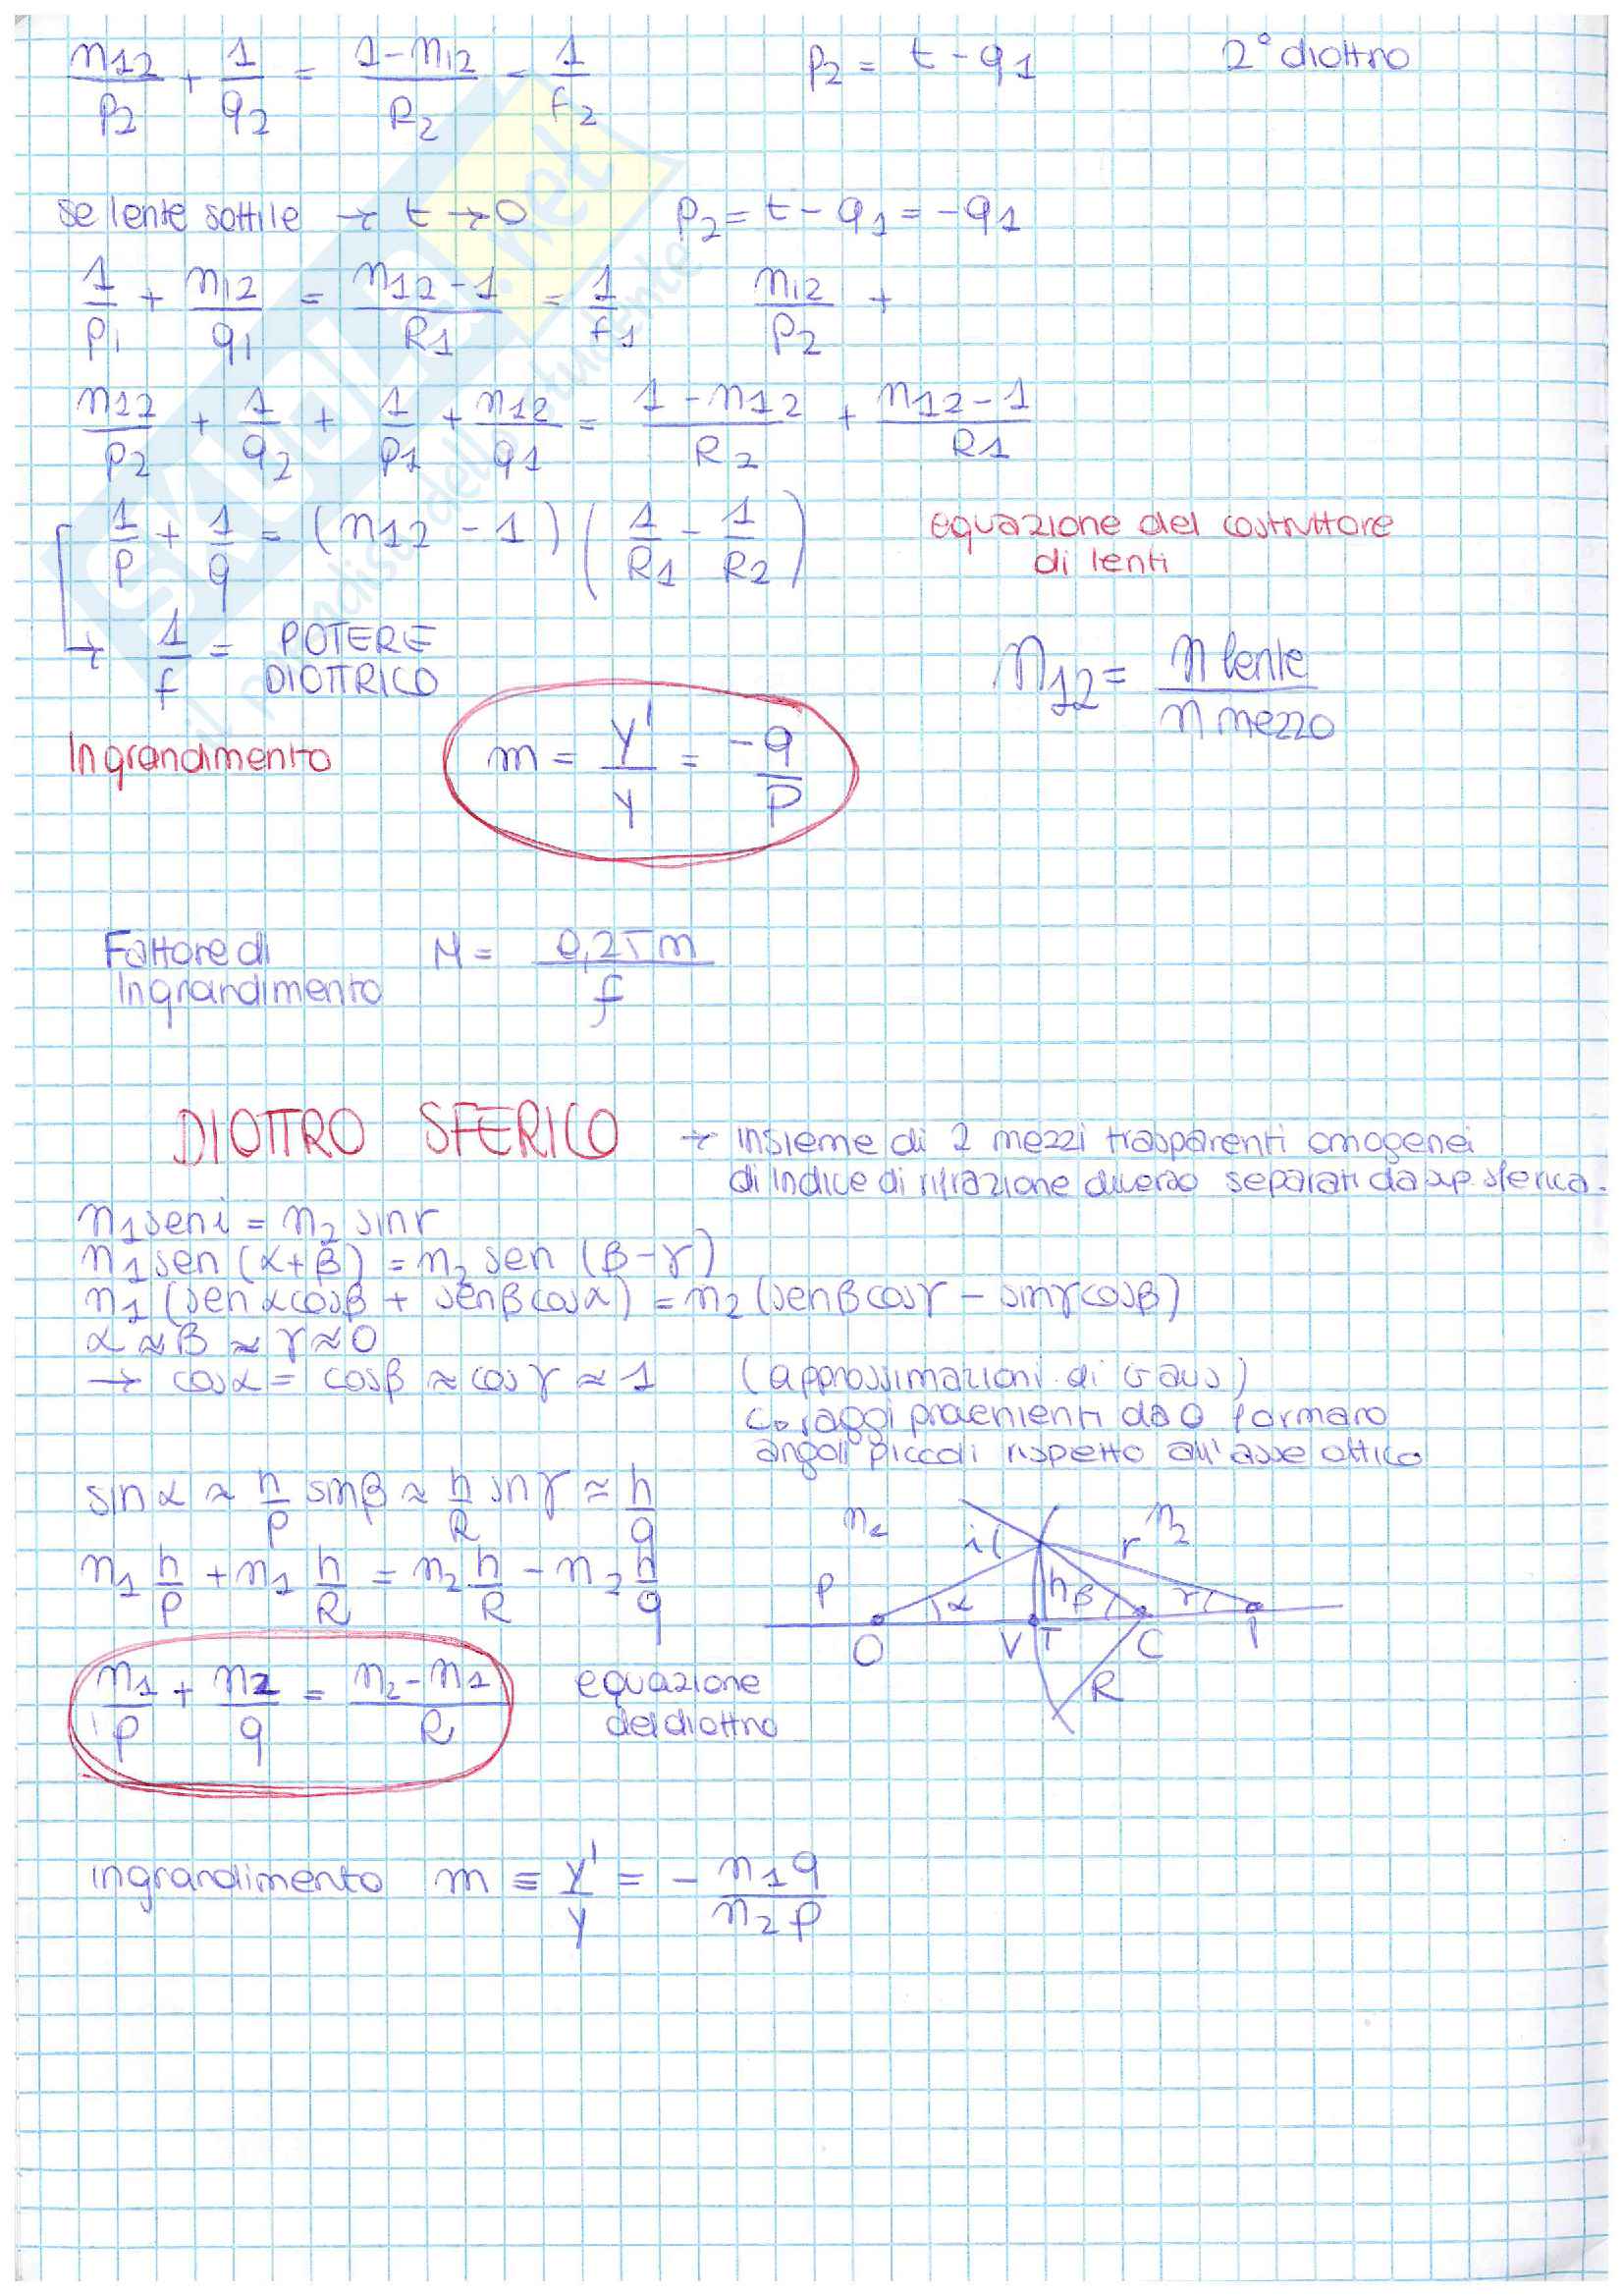 n12/p2 + 1/q2 = 1-n12/R2 = 1/f2 p2 = t - q1 2° diottro
se lente sottile → t → 0 p2 = t - q1 = -q1
1/p1 + n12/q1 = n12-1/R1 = 1/f1 n12/p2 +
n12/p2 + 1/q2 + 1/p1 + n12/q1 = 1-n12/R2 + n12-1/R1
1/p + 1/q = (n12 - 1) (1/R1 - 1/R2) equazione del costruttore
di lenti
→ 1/f = POTERE
DIOTTRICO
n12 = n lente/n mezzo
Ingrandimento m = y'/y = -q/p
Fattore di
Ingrandimento M = 0,25m/f
DIOTTRO SFERICO → insieme di 2 mezzi trasparenti omogenei
di indice di rifrazione diverso separati da sup. sferica.
n1 sen i = n2 sin r
n1 sen (α+β) = n2 sen (β-γ)
n1 (sen α cos β + sen β cos α) = n2 (sen β cos γ - sin γ cos β)
α ≈ β ≈ γ ≈ 0
→ cos α = cos β ≈ cos γ ≈ 1 (approssimazioni di Gauss)
raggi provenienti da O formano
angoli piccoli rispetto all'asse ottico
sin α ≈ h/p sin β ≈ h/R sin γ ≈ h/q
n1 h/p + n1 h/R = n2 h/R - n2 h/q
n1 n2
i r
p α h β γ
O V T C I
R
n1/p + n2/q = n2-n1/R equazione
del diottro
ingrandimento m = y'/y = - n1q/n2p
SKUOLA.net
il paradiso dello studente